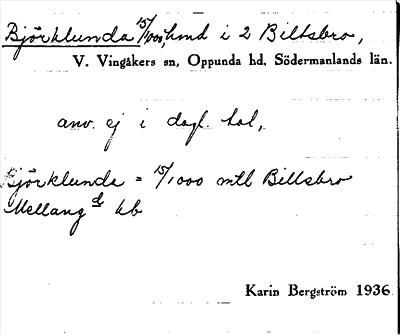 Björklunda 15/1000, hmd i 2 Biltsbro,
V. Vingåkers sn, Oppunda hd, Södermanlands län.
anv. ej i dagl. tal,
Björklunda = 15/1000 mtl Billsbro
Mellang d kb
Karin Bergström 1936